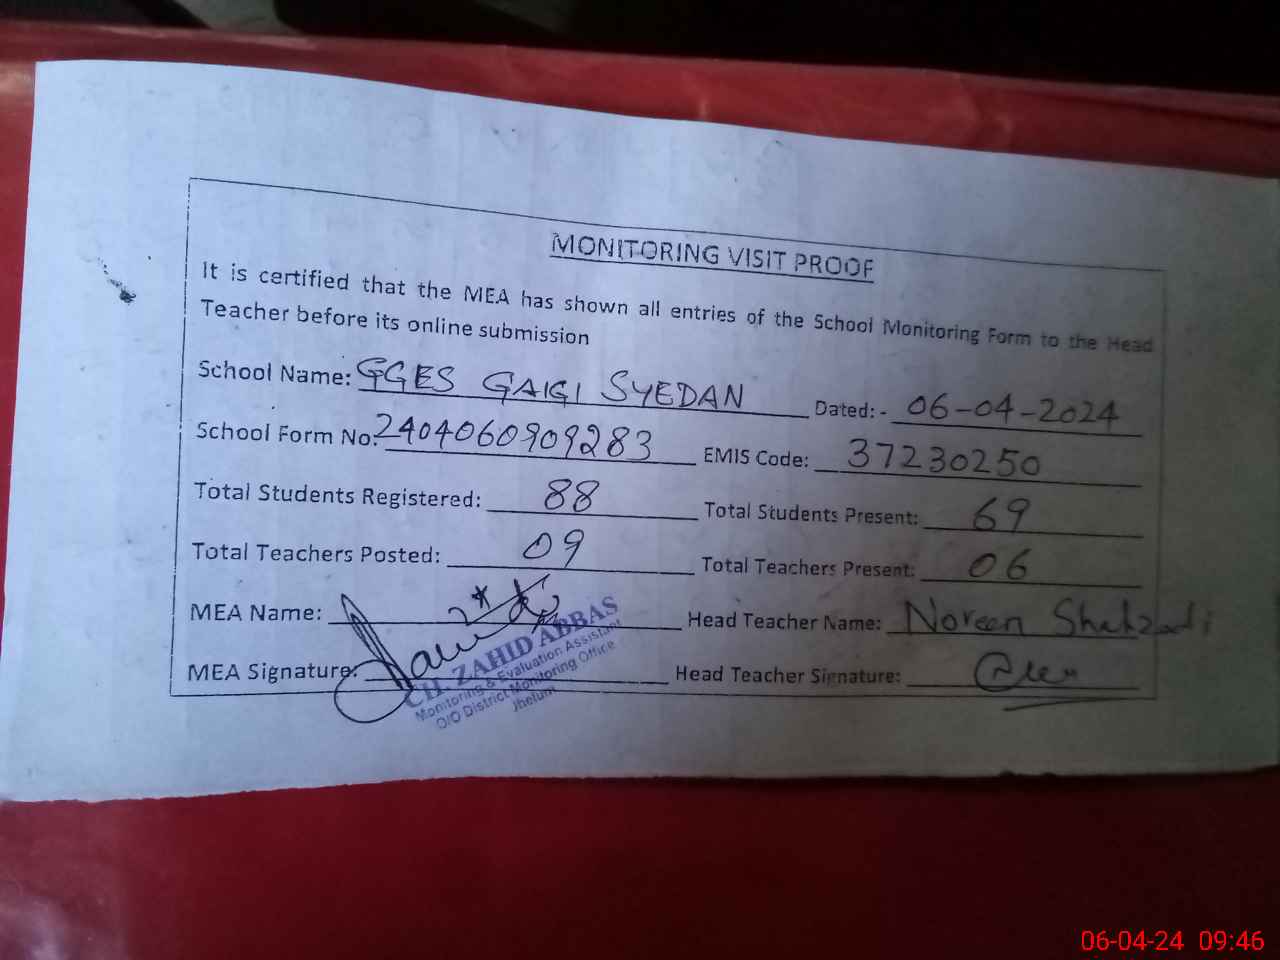 MONITORING VISIT PROOF
It is certified that the MEA has shown all entries of the School Monitoring Form to the Head
Teacher before its online submission
School Name: GGES GAIGI SYEDAN Dated: - 06-04-2024
School Form No: 2404060909283 EMIS Code: 37230250
Total Students Registered: 88 Total Students Present: 69
Total Teachers Posted: 09 Total Teachers Present: 06
MEA Name: Head Teacher Name: Noreen Shahzadi
MEA Signature: Head Teacher Signature:
CH. ZAHID ABBAS
Monitoring & Evaluation Assistant
O/O District Monitoring Office
Jhelum
06-04-24 09:46